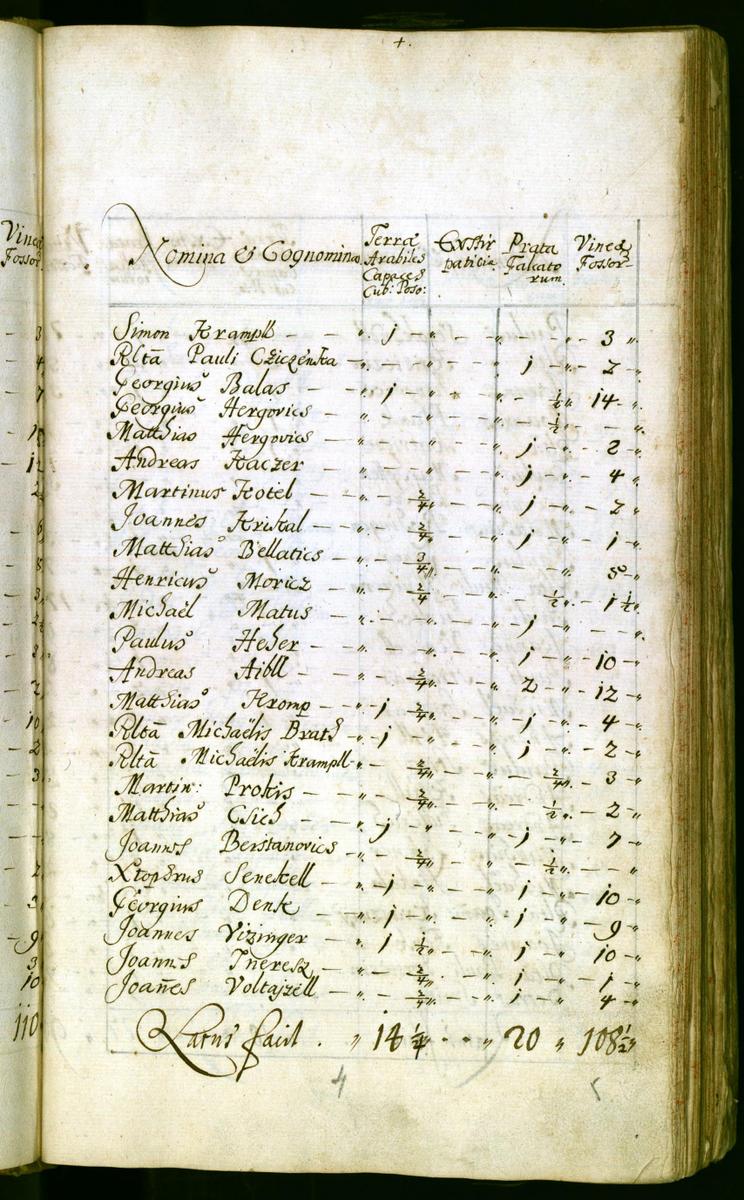 +.
Nomina & Cognomina Terrae Arabiles Capaces Cub: Poso: Exstirpaticiae Prata Falcatorum. Vineae Fossor
Simon Krampll — — „ j — „ — — „ — — „ — 3 „
Rltā Pauli Cziczenka — „ — — „ — — „ j — „ — 2 „
Georgius Balas — — „ j — „ — — „ — ½ „ 14 — „
Georgius Hergovics — „ — — „ — — „ — ½ „ — — „
Matthias Hergovics — „ — — „ — — „ j — „ — 2 „
Andreas Kaczer — — „ — — „ — — „ j — „ — 4 „
Martinus Kotel — — „ — 2/4 „ — — „ j — „ — 2 „
Joannes Kriskal — — „ — 2/4 „ — — „ j — „ — 1 „
Matthias Bellatics — „ — 3/4 „ — — „ — — „ — 5 — „
Henricus Moricz — — „ — 2/4 „ — — „ — ½ „ — 1 ½ „
Michaël Matus — — „ — — „ — — „ j — „ — — „
Paulus Heher — — „ — — „ — — „ j — „ — 10 — „
Andreas Aibll — — „ — 2/4 „ — — „ 2 — „ — 12 — „
Matthias Kromp — „ j 2/4 „ — — „ j — „ — 4 — „
Rltā Michaëlis Brath — „ j — „ — — „ j — „ — 2 — „
Rltā Michaëlis Krampll — „ — 2/4 „ — — „ — 2/4 „ — 3 — „
Martin: Prokis — — „ — 2/4 „ — — „ — ½ „ — 2 — „
Matthias Csich — — „ j — „ — — „ j — „ — 7 — „
Joannes Berstanovics — „ — 2/4 „ — — „ — ½ „ — — „
Xtophrus Senekell — „ j — „ — — „ j — „ — 10 — „
Georgius Denk — — „ j — „ — — „ j — „ — 9 — „
Joannes Vizinger — „ j ½ „ — — „ j — „ — 10 — „
Joannes Theresz — „ — 2/4 „ — — „ j — „ — 1 — „
Joañes Voltajzell — „ — 2/4 „ — — „ j — „ — 4 — „
Latus facit . „ 14 ¼ „ „ 20 „ 108 ½ „
4 5
Vineae
Fossor
3
4
7
6
5
3
2
10
2
3
2
9
3
10
110